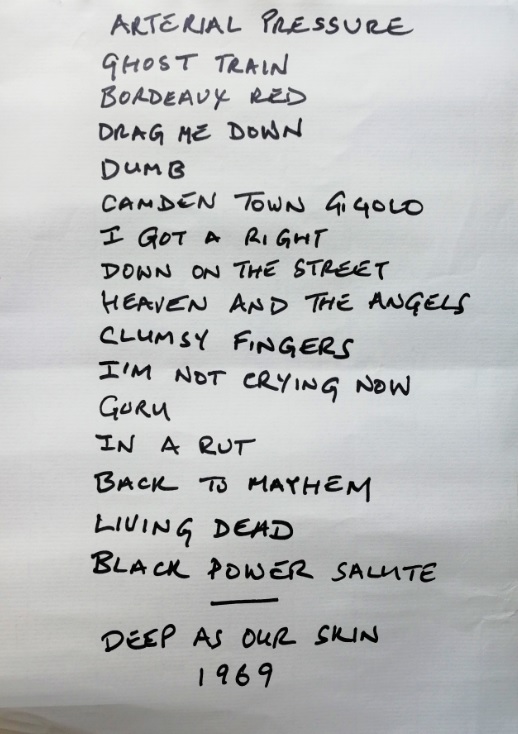 ARTERIAL PRESSURE
GHOST TRAIN
BORDEAUX RED
DRAG ME DOWN
DUMB
CAMDEN TOWN GIGOLO
I GOT A RIGHT
DOWN ON THE STREET
HEAVEN AND THE ANGELS
CLUMSY FINGERS
I'M NOT CRYING NOW
GURU
IN A RUT
BACK TO MAYHEM
LIVING DEAD
BLACK POWER SALUTE
DEEP AS OUR SKIN
1969